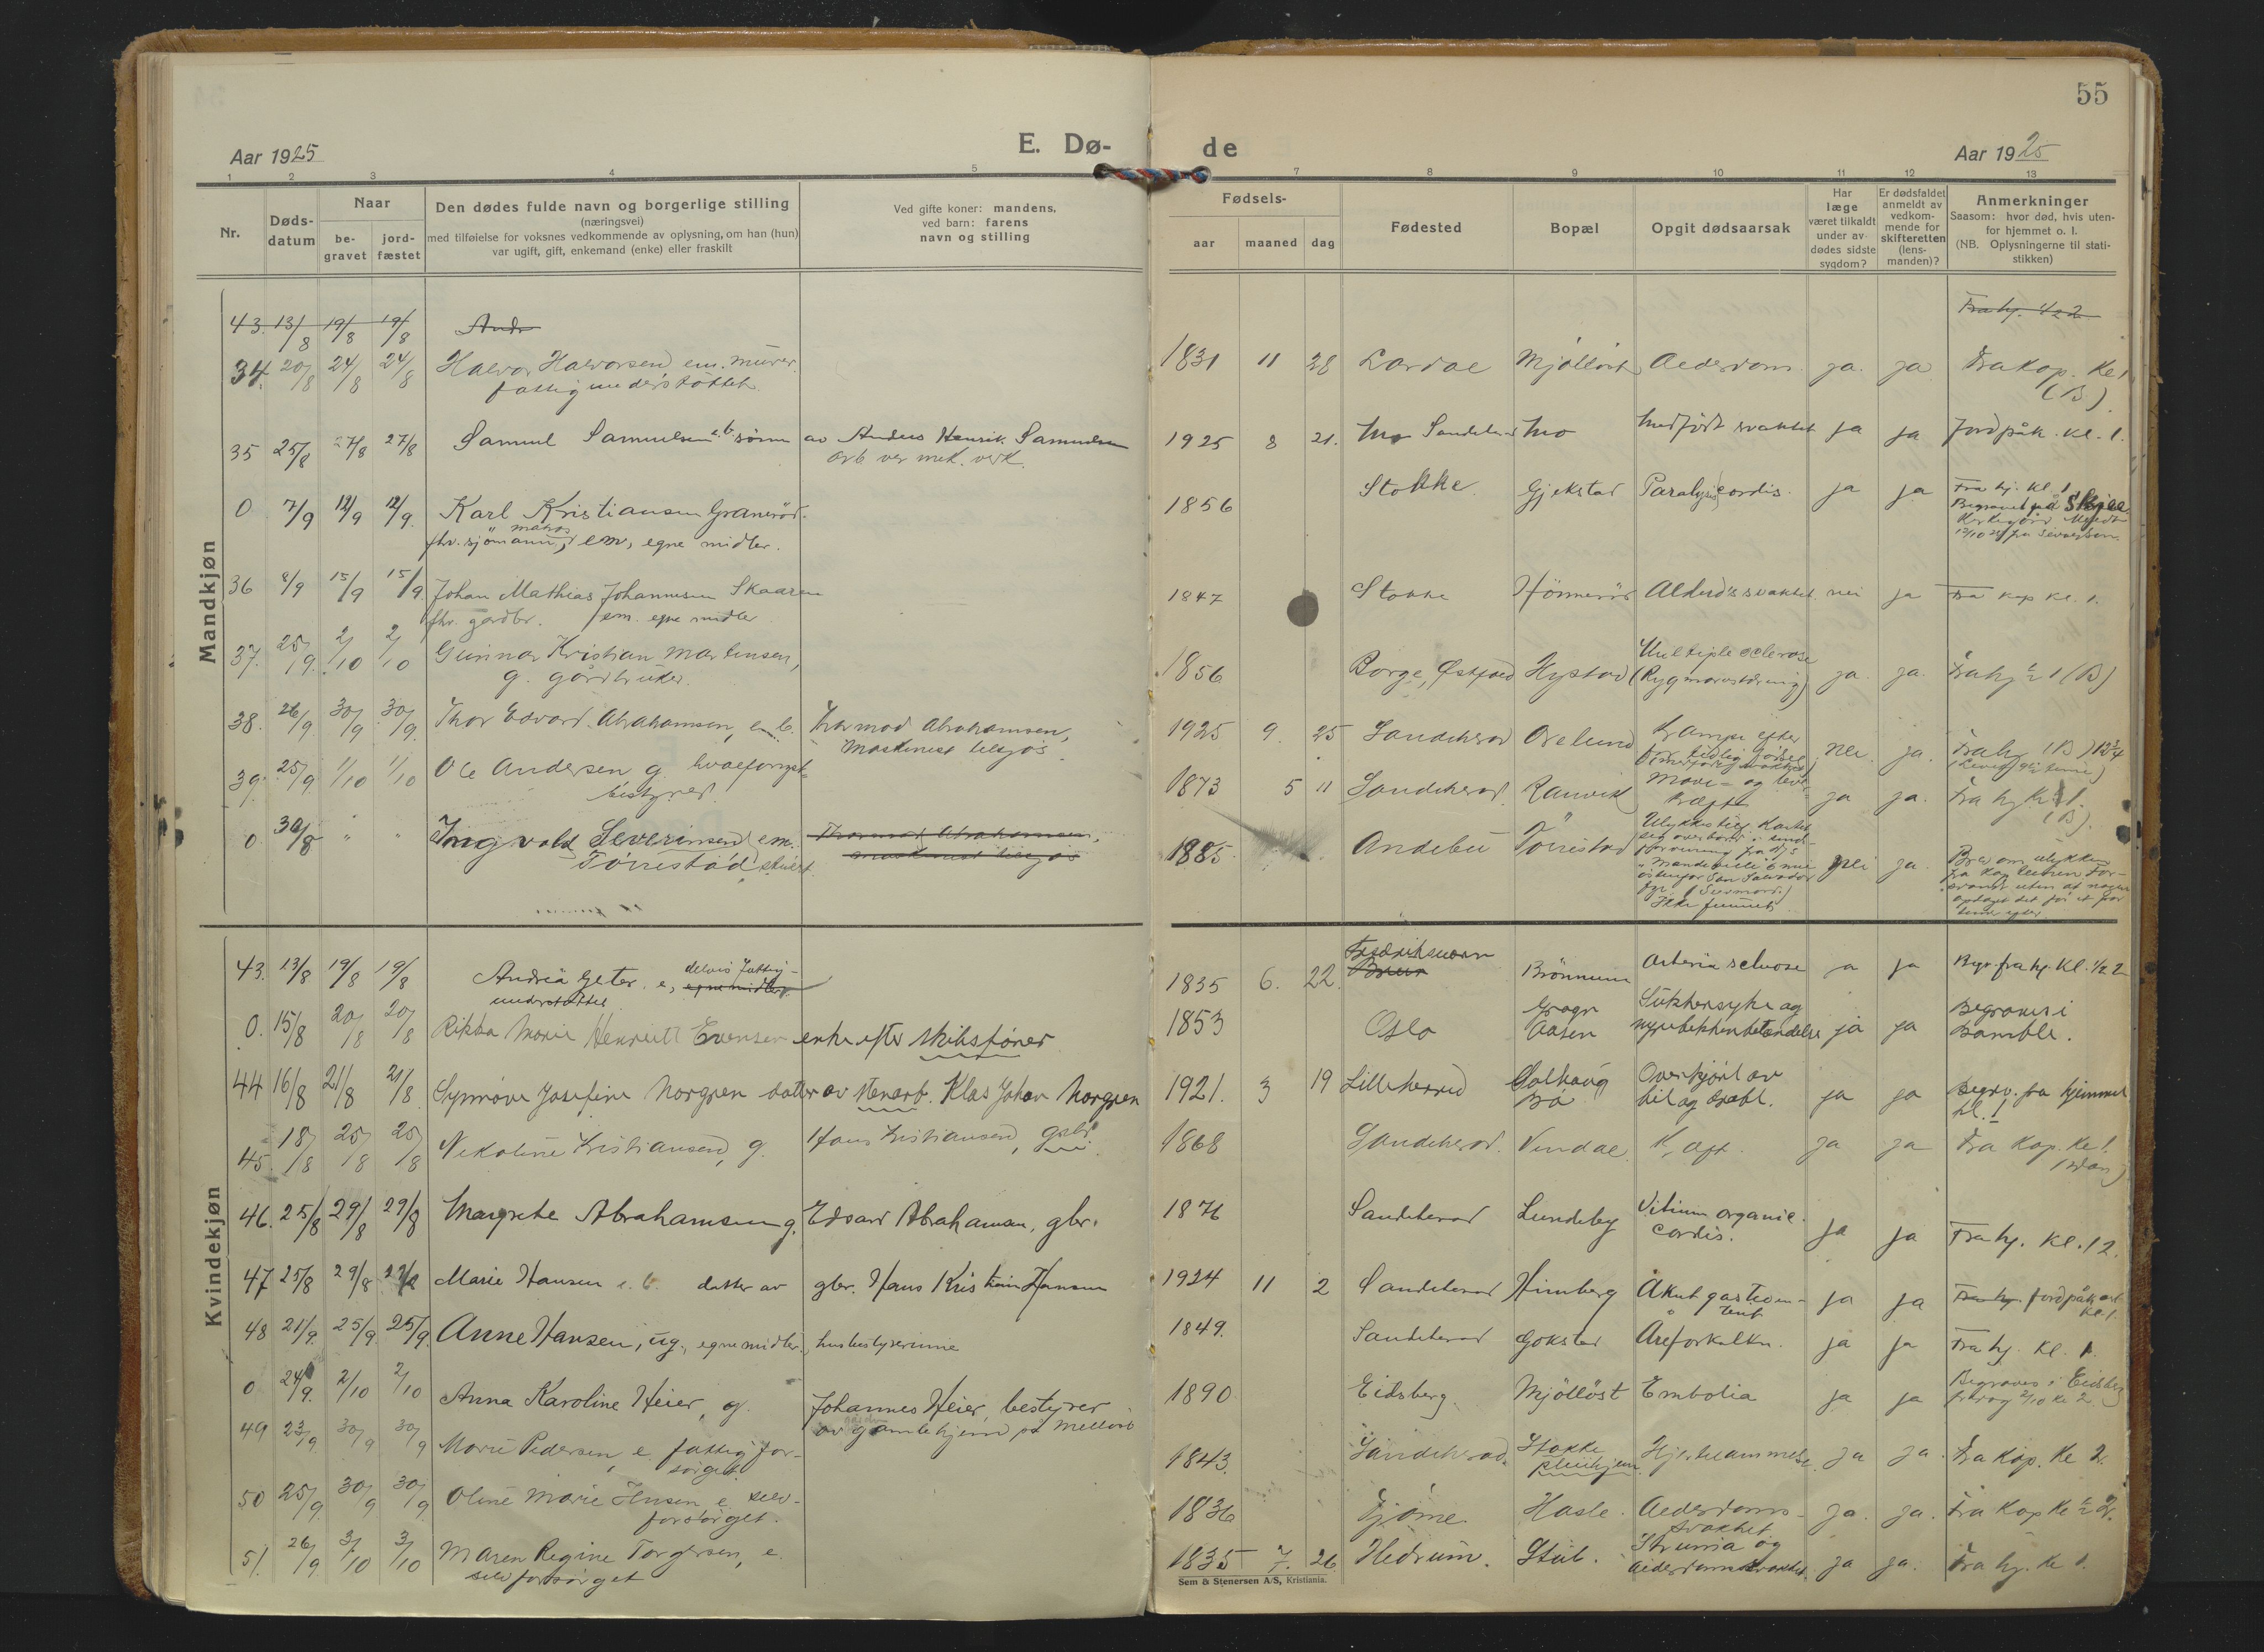 55
Aar 1925
E. Dø-
de
Aar 1925
1 2 3 4 5 7 8 9 10 11 12 13
Nr.
Døds-
datum
Naar
be-
gravet
jord-
fæstet
Den dødes fulde navn og borgerlige stilling
(næringsvei)
med tilføielse for voksnes vedkommende av oplysning, om han (hun)
var ugift, gift, enkemand (enke) eller fraskilt
Ved gifte koner: mandens,
ved barn: farens
navn og stilling
Fødsels-
aar maaned dag
Fødested
Bopæl
Opgit dødsaarsak
Har
læge
været tilkaldt
under av-
dødes sidste
sygdom?
Er dødsfaldet
anmeldt av
vedkom-
mende for
skifteretten
(lens-
manden)?
Anmerkninger
Saasom: hvor død, hvis uten-
for hjemmet o. l.
(NB. Oplysningerne til stati-
stikken)
Mandkjøn
43. 13/8 19/8 19/8 Andr Fra hj. 1/2 2
34. 20/8 24/8 24/8 Halvor Halvorsen, em. murer, 1831 11 28 Lardal Mjølløst Alderdom ja. ja Fra kap. kl 1
fattigunderstøttet (B)
35 25/8 27/8 27/8 Samuel Samuelsen e.b. sønn av Anders Henrik Samuelsen 1925 8 21. Mo Sandeherred Mo Medfødt svakhet ja ja Jordpåk. kl. 1.
arb. ver mek. verk.
0 7/9 12/9 12/9. Karl Kristiansen Granerød. 1856 Stokke Gjekstad Paralysis cordis. ja ja Fra hj. kl. 1
fhv. sjømann, em, egne midler. Begravet på Skjee
36 8/9 15/9 15/9. Johan Mathias Johannesen Skaaren 1847 Stokke Hønnerød Alderdsvakhet nei ja Fra kap kl. 1.
fhv. gardbr. em. egne midler
37. 25/9. 2/10 2/10 Gunnar Kristian Martinsen, 1856 Borge, Østfold Hystad Multiple sclerose ja. ja. Fra hj 1/2 1 (B)
g. gårdbruker. (Rygmarvstæring)
38. 26/9. 30/9 30/9. Thor Edvard Abrahamsen, e. b. Thormod Abrahamsen, 1925 9. 25 Sandeherred Orelund Krampe efter nei. ja. Fra hj (B)
Maskinist tilsjøs.
39. 25/9. 1/10 1/10 Ole Andersen g. hvalfangst- 1873 5 11 Sandeherred. Ranvik Mave- og lever- ja ja. Fra hj kl 1.
bestyrer kræft (B).
0 30/8 " " Ingvald Severinsen em. Thormod Abrahamsen, 1885. Andebu Tørrestad Ulykkestilf. Kastet nei ja.
Tørrestad maskinist tilsjøs
Ikke funnet
Kvindekjøn
43. 13/8 19/8 19/8 Andrea Geter. e, delvis fattig- egne midler. 1835 6. 22. Fredriksværn Brønnum ja ja Begr. fra hj. kl. 1/2 2
understøttet
0. 15/8 20/8 20/8 Rikka Marie Henriett Evensen enke efter skibsfører 1853 Oslo Aasen Sukkersyke og nyrebekkenbetændelse ja ja Begraves i
Bamble.
44 16/8 21/8 21/8 Synnøve Josefine Norgren datter av stenarb. Klas Johan Norgren 1921. 3 19 Lilleherred Solhaug Overkjørt av ja ja Begrv. fra hjemmet
Bø bil og dræbt. kl. 1
45. 18/8 25/8 25/8 Nikoline Kristiansen, g. Hans Kristiansen, gbr. 1868 Sandeherred. Vindal. Kræft. ja ja Fra kap. kl 1.
46. 25/8 29/8 29/8 Margrete Abrahamsen g. Edvard Abrahamsen, gbr. 1876 Sandeherred Lundeby Vitium organic. ja ja Fra hj. kl. 12.
cordis.
47 25/8 29/8 29/8 Marie Hansen e. b. datter av gbr. Hans Kristian Hansen 1924 11 2 Sandeherred Himberg Akut gastroen- ja ja Fra hj. jordpåk.
kl 1.
48 21/9. 25/9. 25/9. Anne Hansen, ug., egne midler., husbestyrerinne 1849. Sandeherred Gokstad Åreforkalkn. ja ja Fra hj. kl. 1.
0 24/9. 2/10 2/10 Anna Karoline Heier, g. Johannes Heier, bestyrer 1890 Eidsberg. Mjølløst Embolia ja ja Begraves i Eidsberg
av gamlehjem på Melløst fredag 2/10 kl 2.
49 23/9. 30/9 30/9 Marie Pedersen, e. fattigfor- 1843. Sandeherred. Stokke Hjertelammelse ja ja. Fra kap. kl 2.
sørget pleiehjem.
50 25/9. 30/9 30/9 Oline Marie Jensen e. selv- 1836 Tjøme Hasle. Alderdoms- ja. ja. Fra kap kl 1/2 2.
forsørget. svakhet
51. 26/9 3/10 3/10 Maren Regine Torgersen, e. 1835 7 26 Hedrum. Stub. Struma og ja ja. Fra hj. kl 1.
selvforsørget alderdomssvakhet.
Sem & Stenersen A/S, Kristiania.